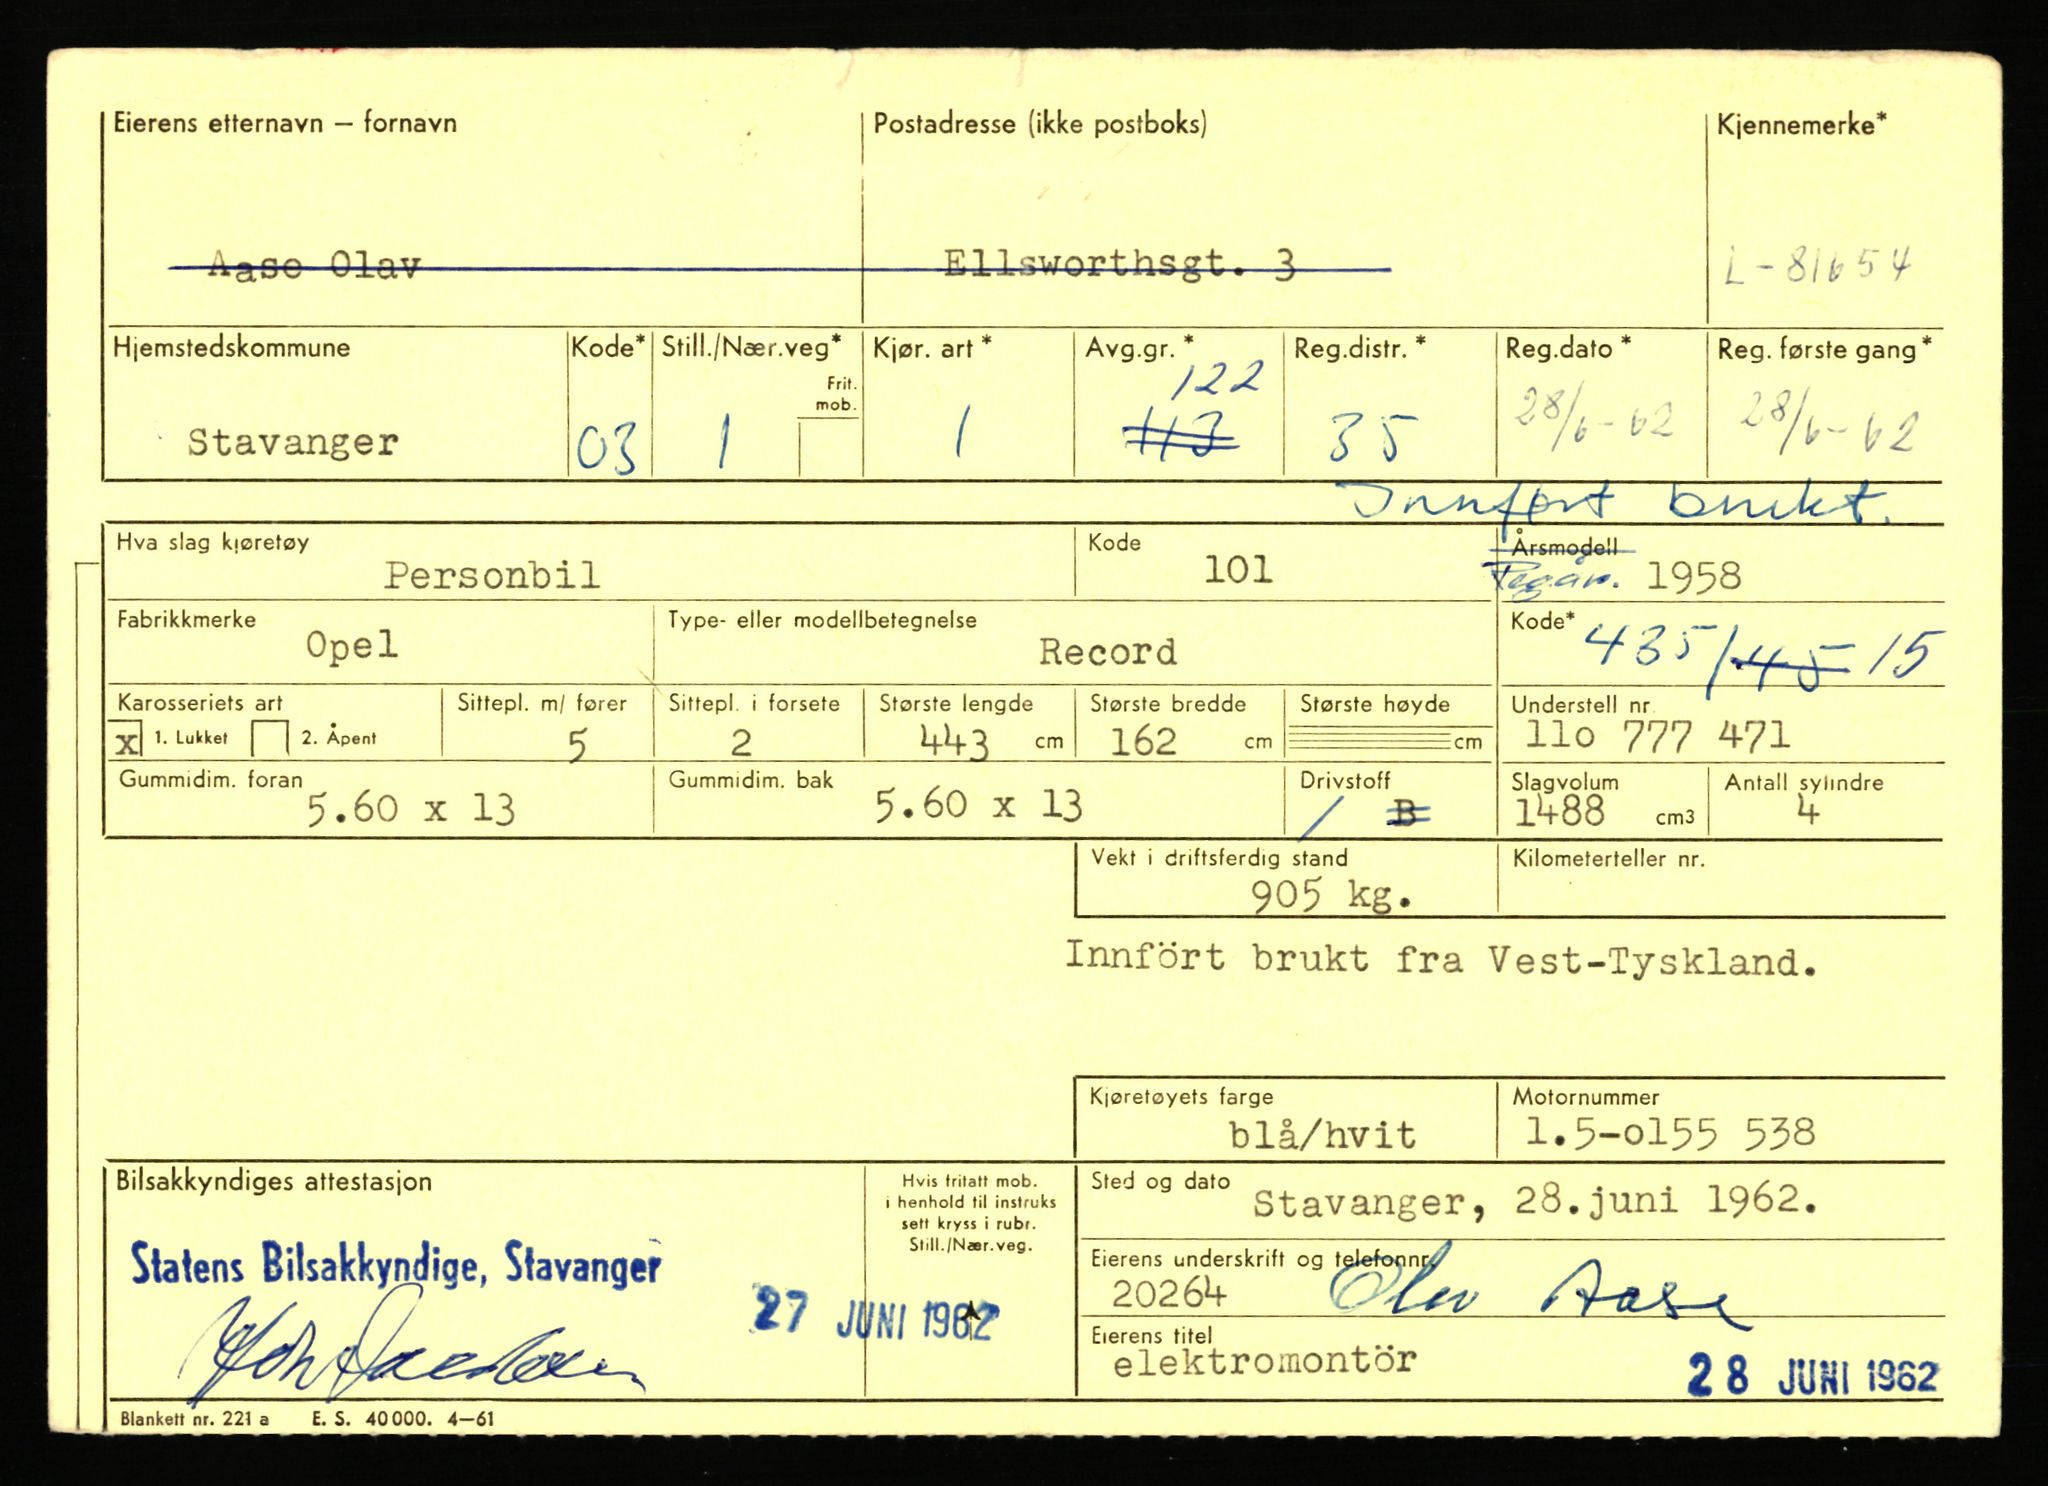 Eierens etternavn – fornavn Postadresse (ikke postboks) Kjennemerke*
Aase Olav Ellsworthsgt. 3 L-81654
Hjemstedskommune Kode* Still./Nær.veg* Kjør. art* Avg.gr.* Reg.distr.* Reg.dato* Reg. første gang*
Frit. mob. 122
Stavanger 03 1 1 113 35 28/6-62 28/6-62
Innført brukt.
Hva slag kjøretøy Kode Årsmodell
Personbil 101 Reg.år. 1958
Fabrikkmerke Type- eller modellbetegnelse Kode*
Opel Record 435/45 15
Karosseriets art Sittepl. m/ fører Sittepl. i forsete Største lengde Største bredde Største høyde Understell nr.
x 1. Lukket 2. Åpent 5 2 443 cm 162 cm cm 110 777 471
Gummidim. foran Gummidim. bak Drivstoff Slagvolum Antall sylindre
5.60 x 13 5.60 x 13 / B 1488 cm3 4
Vekt i driftsferdig stand Kilometerteller nr.
905 kg.
Innfört brukt fra Vest-Tyskland.
Kjøretøyets farge Motornummer
blå/hvit 1.5-o155 538
Bilsakkyndiges attestasjon
Statens Bilsakkyndige, Stavanger
27 JUNI 1962
Hvis fritatt mob.
i henhold til instruks
sett kryss i rubr.
Still./Nær.veg.
Sted og dato Stavanger, 28.juni 1962.
Eierens underskrift og telefonnr.
20264 Olav Aase
Eierens titel
elektromontör 28 JUNI 1962
Blankett nr. 221 a E. S. 40 000. 4–61